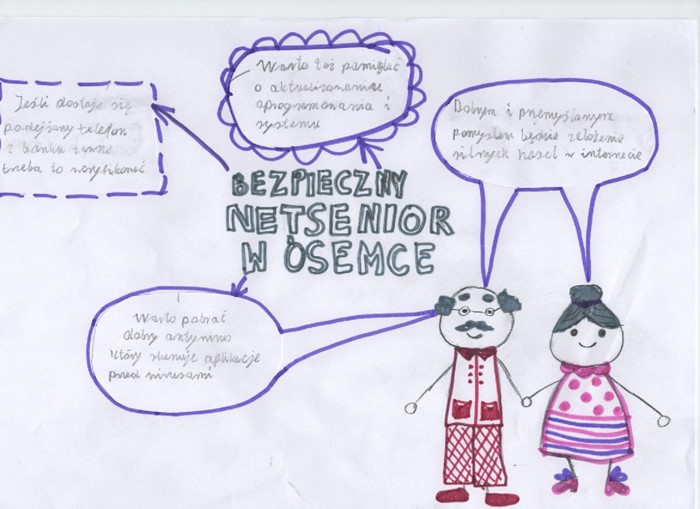 Jeśli dostaje się
podejżany telefon
z banku
trzeba to zweryfikować
Warto też pamiętać
o aktualizowaniu
oprogramowania i
systemu
Dobrym i przemyślanym
pomysłem będzie założenie
silnych haseł w internecie
BEZPIECZNY
NETSENIOR
W ÓSEMCE
Warto pobrać
dobry antywirus
który skanuje aplikacje
przed wirusami